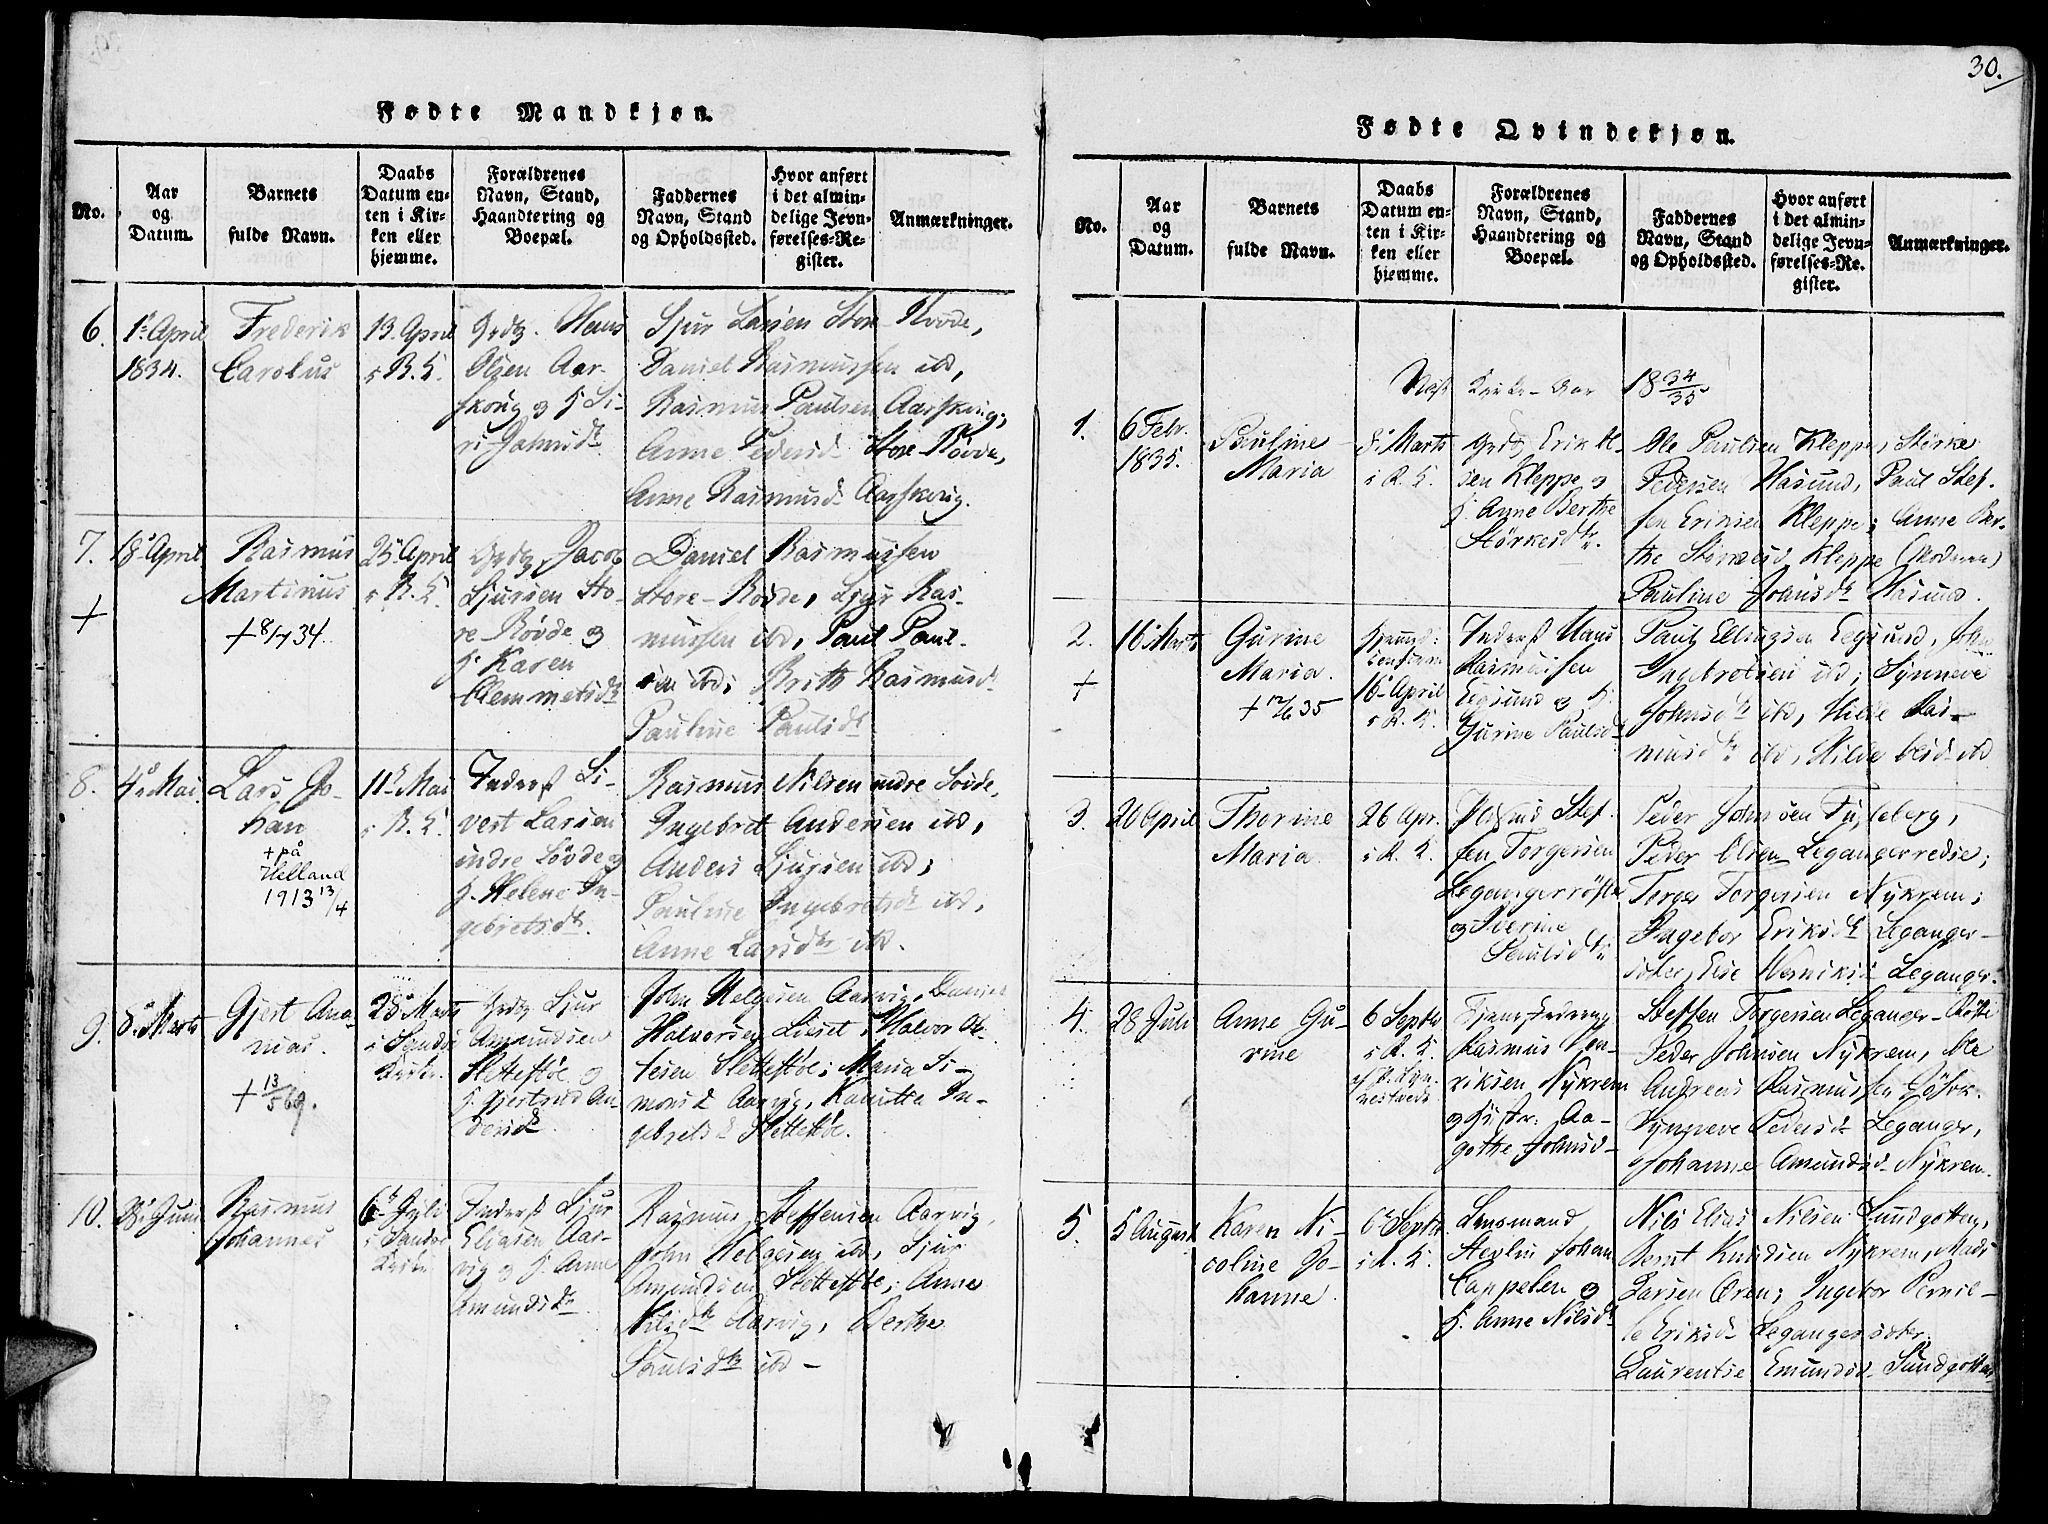 30.
Fødte Mandkjøn.
No.
Aar
og
Datum.
Barnets
fulde Navn.
Daabs
Datum en-
ten i Kir-
ken eller
hjemme.
Forældrenes
Navn, Stand,
Haandtering og
Boepæl.
Faddernes
Navn, Stand
og Opholdssted.
Hvor anført
i det almin-
delige Jevn-
førelses-Re-
gister.
Anmærkninger.
6.
1ste April
1834.
Frederik
Carolus
13 April
i R. K.
Grdbr. Hans
Olsen Aar-
skoug og H Si-
ri
Sjur Larsen Store-Rövde,
Daniel Rasmussen ibd,
Rasmus Paulsen Aarskoug;
Anne Pedersd Store-Rövde,
Anne Rasmusd Aarskoug.
7.
+
18 April
Rasmus
Martinus
+ 8/7 34.
25 April
i R. K.
Jacob
Sjursen Sto-
re-Rövde og
H. Karen
Clemmetsdtr
Daniel Rasmussen
Store-Rövde, Sjur Ras-
mussen ibd, Paul Paul-
sen ibd; Brith Rasmusd
Pauline Paulsdtr
8.
4 Mai.
Lars Jo-
han
+ på
Helland
1913 13/4
11te Mai
i R. K.
Inderst Si-
vert Larsen
indre Sövde og
H. Helene In-
gebretsdtr.
Rasmus Nilsen indre Sövde,
Ingebret Andersen ibd,
Anders Sjursen ibd;
Pauline Ingebretsd ibd,
Anne Larsdtr ibd.
9.
8 Marts
Gjert Ana-
nias.
+ 13/5 69.
28 Marts
i Sande
Kirke.
Sjur
Amundsen
Slettestøe og
H. Gjertrud An-
dersd
John Helgesen Aarvig,
Halvorsen Halvor
Slettestøe; Maria Si-
monsd Aarvig, In-
gebretsd Slettestøe.
10.
Juni
Rasmus
Johannes
6te Juli
i Sande
Kirke
Inderst Sjur
Eliasen Aar-
vig og H. Anne
Amundsdtr
Rasmus Steffensen Aarvig,
John Helgesen ibd, Sjur
Amundsen Slettestøe; Anne
Nilsdtr Aarvig, Berthe
Paulsdtr ibd -
Fødte Qvindekjøn.
No.
Aar
og
Datum.
Barnets
fulde Navn.
Daabs
Datum en-
ten i Kir-
ken eller
hjemme.
Forældrenes
Navn, Stand,
Haandtering og
Boepæl.
Faddernes
Navn, Stand
og Opholdssted.
Hvor anført
i det almin-
delige Jevn-
førelses-Re-
gister.
Anmærkninger.
Kirke-Aar 18 34/35
1.
6 Febr.
1835.
Pauline
Maria
Marts
i R. K.
Erik Ol-
sen Kleppe og
H. Anne Berthe
Störkesdtr.
Ole Paulsen Kleppe, Störke
Pedersen Hasund, Paul Stef-
fen Eriksen Kleppe; Anne Ber-
the Störkesd Kleppe (Moderen)
Pauline Johnsdtr Hasund.
2.
+
16 Marts
Gurine
Maria.
+ 12/6 35
16 April
i R. K.
Inderst Hans
Rasmussen
Eegsund og H.
Gurine Paulsdtr
Paul Ellingsen Eegsund,
Ingebretsen ibd; Synneve
Johnsdtr ibd, Hilde Ras-
musdtr ibd, Hilde Olsd ibd
3.
20 April
Thorine
Maria
26 Apr.
i R. K.
Stef-
fen Torgersen
Legangerröste
og Severine
Peder Johnsen
Peder Olsen
Torger Torgersen Nykrem;
Ingebor Eriksdtr Leganger-
Leganger-
4.
28 Juli
Anne Gu-
rine
6 Septbr
i R. K.
Rasmus Hen-
riksen Nykrem
Aa-
gothe Johnsd-
Steffen Torgersen Leganger-Röste
Peder Johnsen Nykrem, Ole
Andreas Rasmussen
Synneve Pedersd Leganger,
Johanne Amundsd Nykrem.
5.
5 August
Karen Ni-
coline Jo-
hanne.
6te Septbr
i R. K.
Lensmand
Johan
Cappelen og
H. Anne Nilsdtr
Nils Elias Nilsen
Bernt Knudsen Nykrem, Mads
Larsen Ören; Ingebor Pernil-
le Eriksd
Laurentse Emundsd